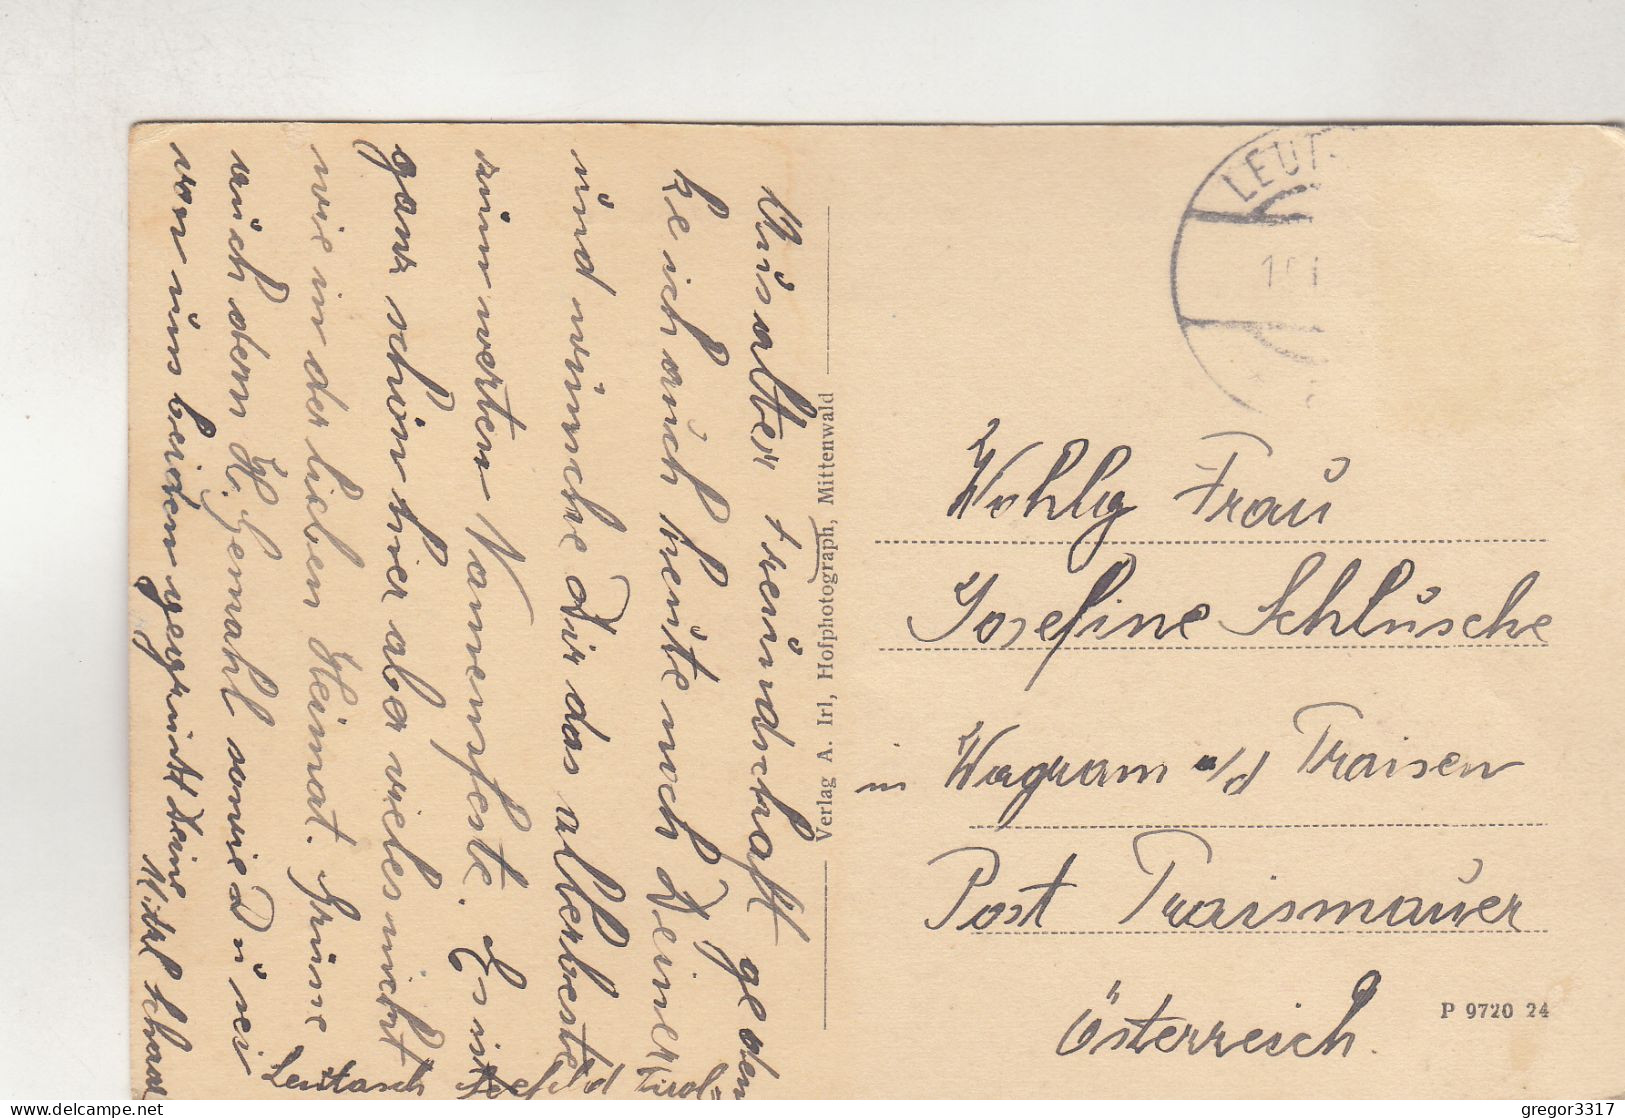 Aus alter Freundschaft geden
ke ich auch heute noch Deiner
und wünsche Dir das allerbeste
zum werten Namensfeste. Es ist
ganz schön hier aber vieles nicht
wie in der lieben Heimat. Grüsse
auch dem H. Gemahl sowie Du sei
von uns beiden gegrüsst Deine
Leutasch Seefeld Tirol
Verlag A. Irl, Hofphotograph, Mittenwald
LEUT
Wohlg Frau
Josefine Schlusche
in Wagram a/d Traisen
Post Traismauer
Österreich.
P 9720 24
delcampe.net
gregor3317